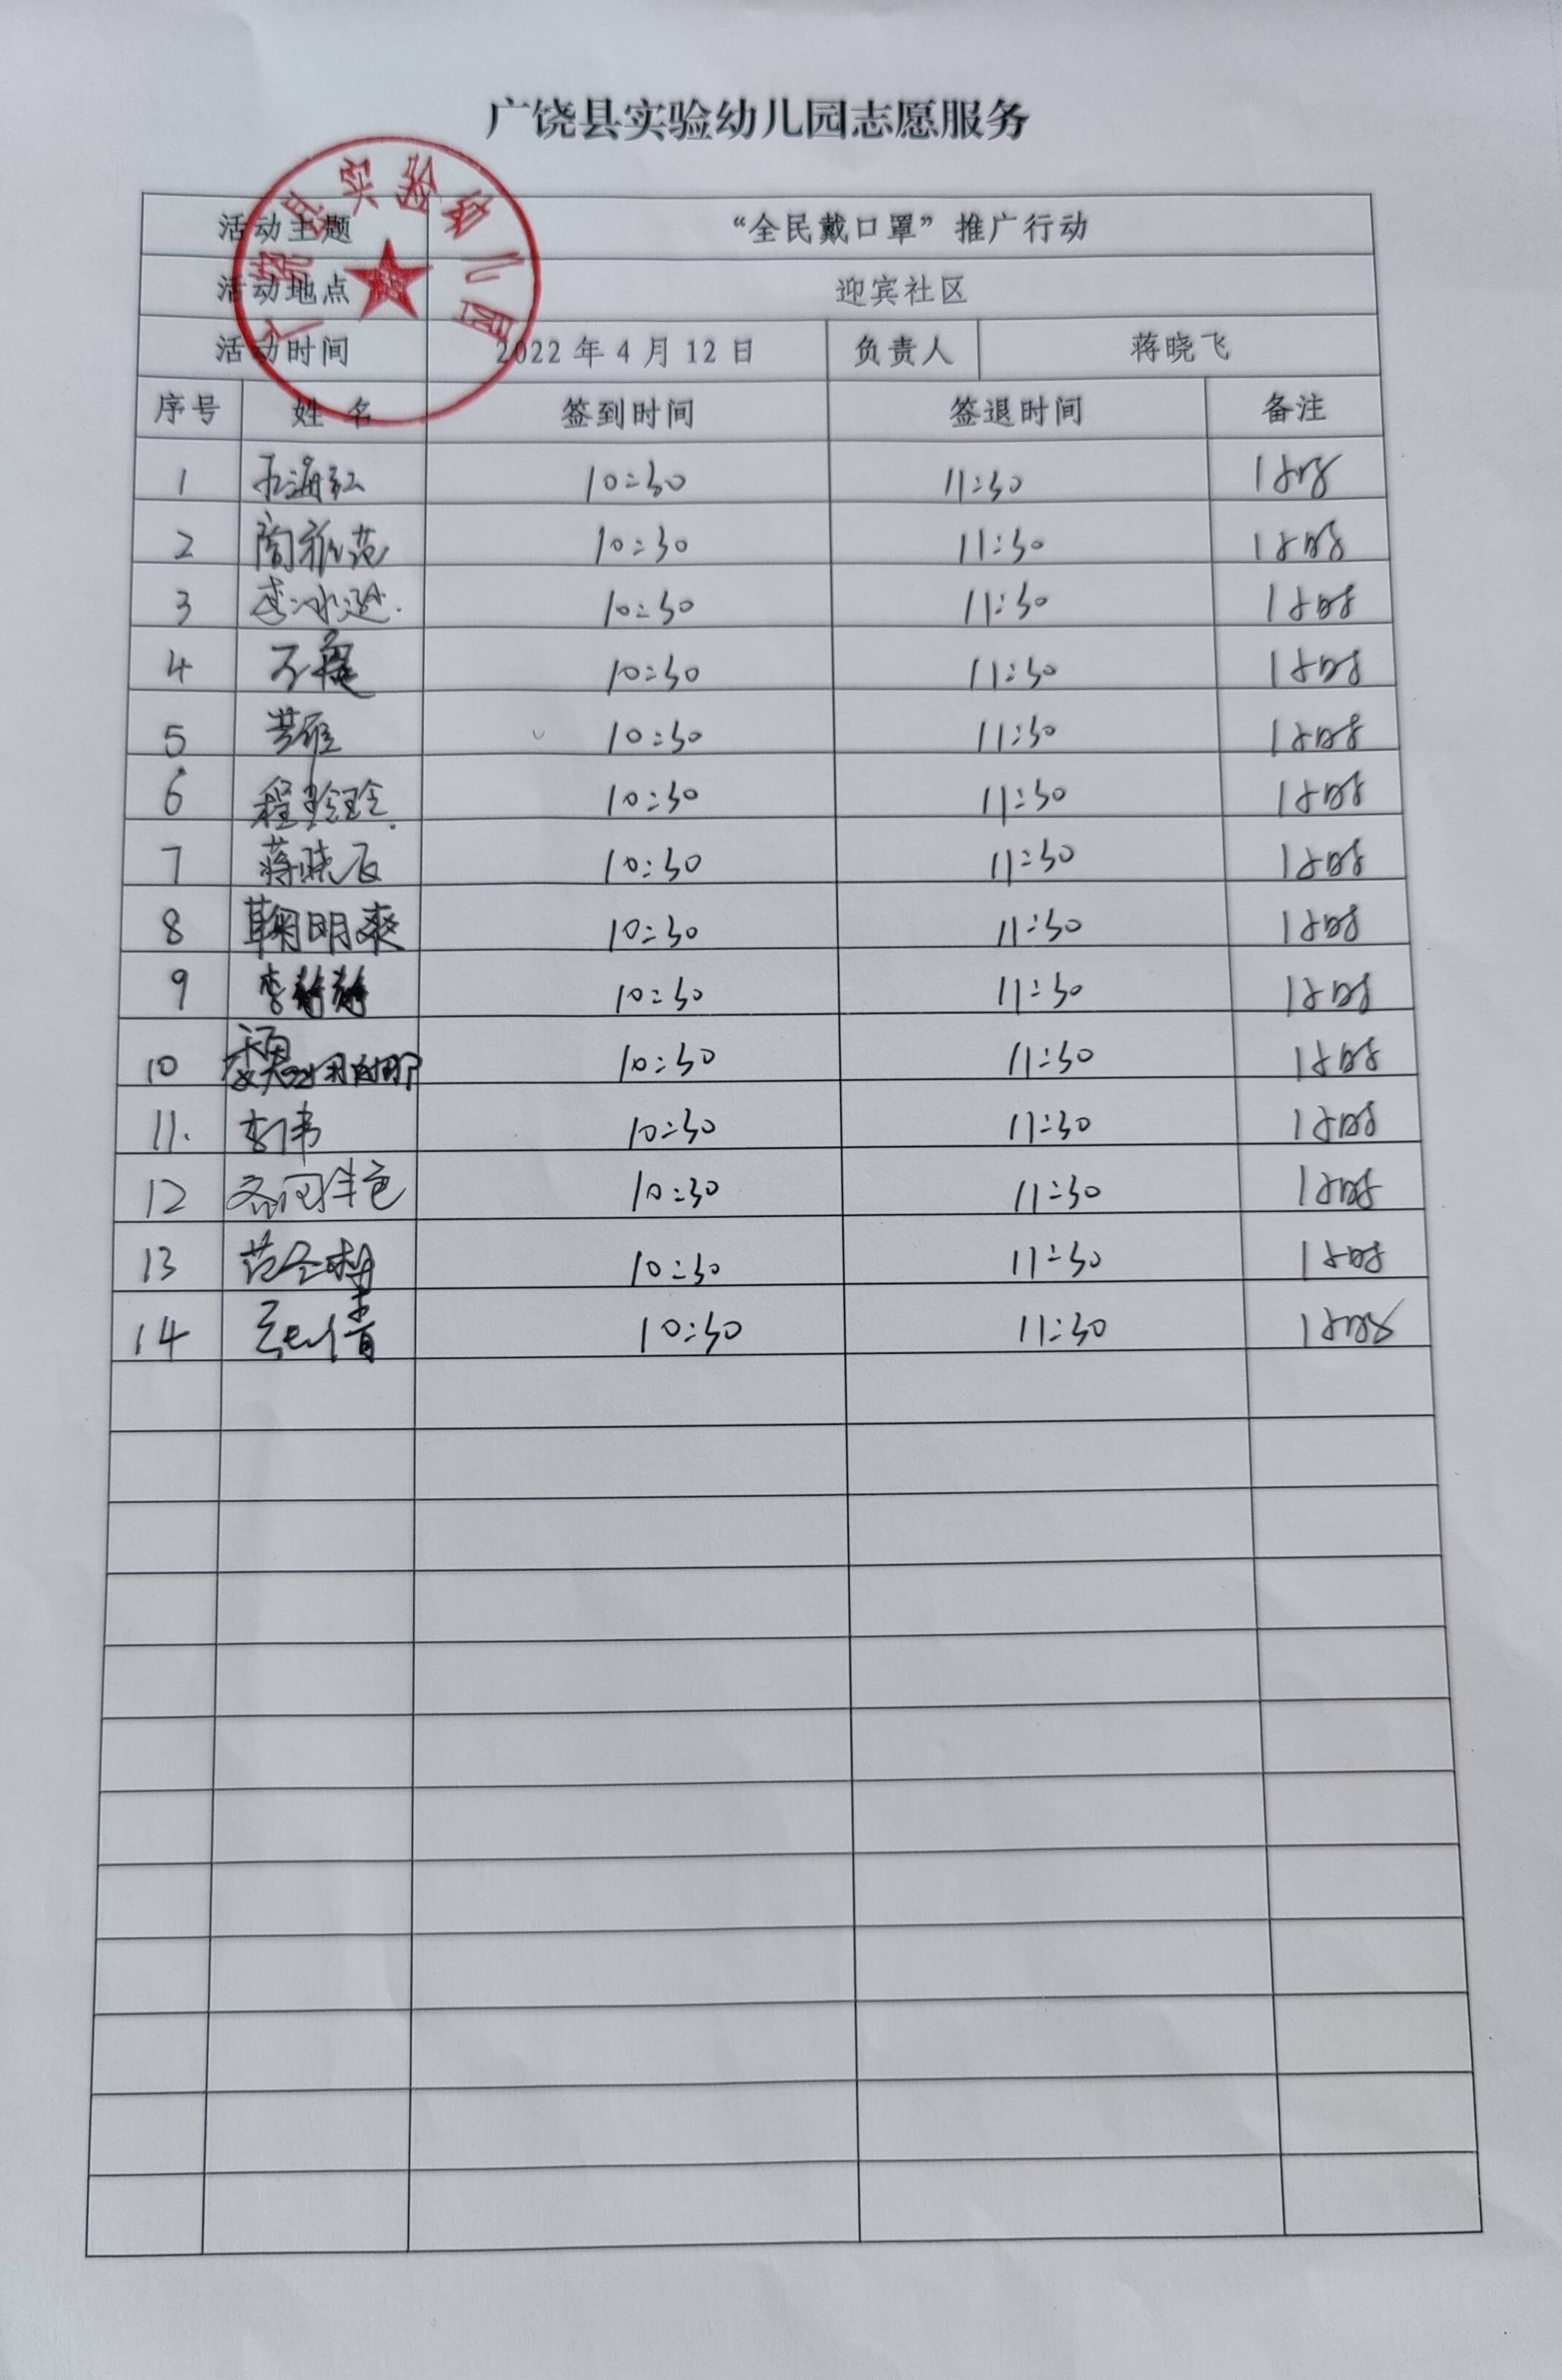 广饶县实验幼儿园志愿服务
活动主题 “全民戴口罩”推广行动
活动地点 迎宾社区
活动时间 2022年4月12日 负责人 蒋晓飞
广饶县实验幼儿园
序号 姓名 签到时间 签退时间 备注
1 海红 10:30 11:30 1小时
2 10:30 11:30 1小时
3 李冰 10:30 11:30 1小时
4 10:30 11:30 1小时
5 10:30 11:30 1小时
6 程 10:30 11:30 1小时
7 蒋晓飞 10:30 11:30 1小时
8 鞠明爽 10:30 11:30 1小时
9 李静静 10:30 11:30 1小时
10 魏 10:30 11:30 1小时
11. 李伟 10:30 11:30 1小时
12 10:30 11:30 1小时
13 范 10:30 11:30 1小时
14 倩 10:30 11:30 1小时